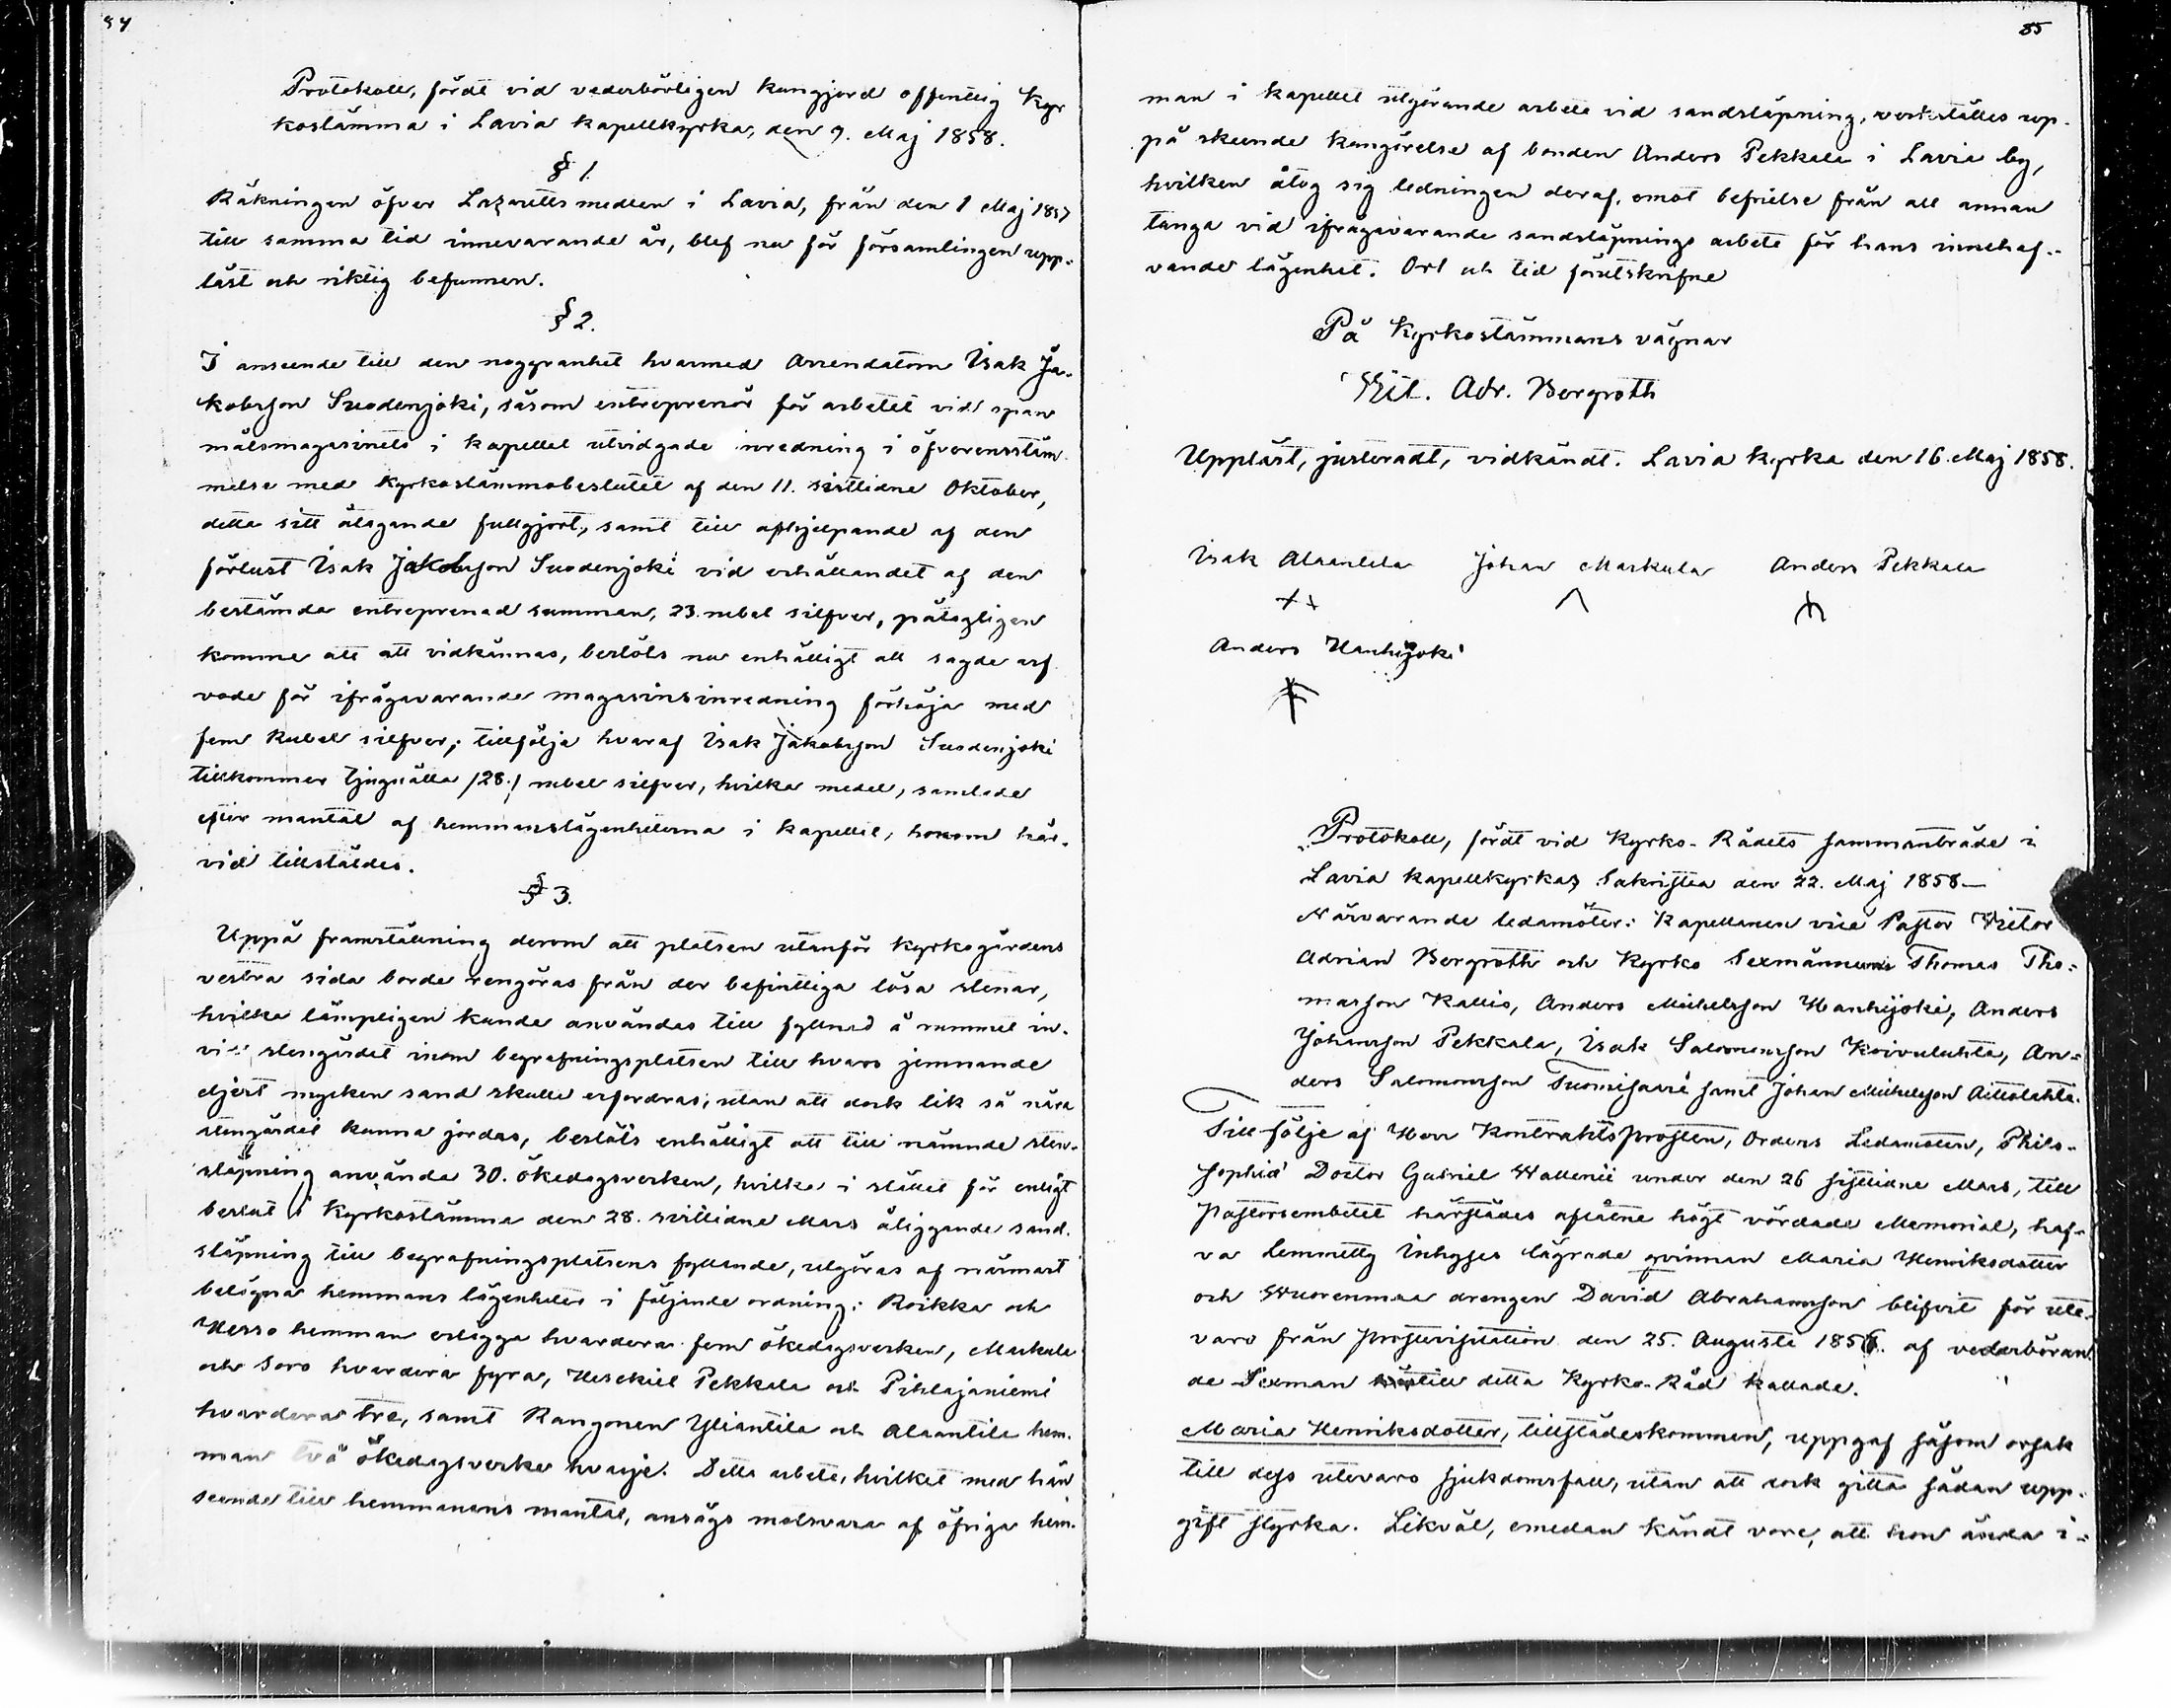 84
Protokoll, fördt vid vederbörligen kungjord offentlig Kyr
kostämma i Lavia kapellkyrka, den 9. Maj 1858.
§ 1.
Räkningen öfver Lazarettsmedlen i Lavia, från den 1 Maj 1857
till samma tid innevarande år, blef nu för församlingen upp-
läst och riktig befunnen.
§ 2.
I anseende till den noggranhet hvarmed Arrendatorn Isak Ja-
kobsson Suodenjoki, såsom entreprenör för arbetet vid span
målsmagasinets i kapellet utvidgade inredning i öfverensstäm
melse med Kyrkostämmobeslutet af den 11. sistlidne Oktober,
detta sitt åtagande fullgjort, samt till afhjelpande af den
förlust Isak Jakobsson Suodenjoki vid erhållandet af den
bestämda entreprenad summan, 23. rubel silfver, påtagligen
komme att att vidkännas, beslöts nu enhälligt att sagde arf
vode för ifrågavarande magasinsinredning förhöja med
fem Rubel silfver; tillfölje hvaraf Isak Jakobsson Suodenjoki
tillkommer tjuguåtta /28./ rubel silfver, hvilka medel, samlade
efter mantal af hemmanslägenheterna i kapellet, honom här-
vid tillstäldes.
§ 3.
Uppå framställning derom att platsen utanför kyrkogårdens
vestra sida borde rengöras från der befintliga lösa stenar,
hvilka lämpligen kunde användas till fyllnad å rummet in-
vid stengärdet inom begrafningsplatsen till hvars jemnande
eljest mycken sand skulle erfordras, utan att dock lik så nära
stengärdet kunna jordas, beslöts enhälligt att till nämnde sten-
släpning använda 30. ökedagsverken, hvilka i stället för enligt
beslut i Kyrkostämma den 28. sistlidne Mars åliggande sand-
släpning till begrafningsplatsens fyllande, utgöras af närmast
belägna hemmans lägenheter i följande ordning: Roikka och
Hesso hemman erlägga hvardera fem ökedagsverken, Markula
och Soro hvardera fyra, Heskiel Pekkala och Pihlajaniemi
hvardera tre, samt Rangonen Yliantila och Alaantila hem-
man två ökedagsverke hvarje. Detta arbete, hvilket med hän
seende till hemmanens mantal, ansågs motsvara af öfriga hem-
85
man i kapellet utgörande arbete vid sandsläpning, verkställes upp-
på skeende kungörelse af bonden Anders Pekkala i Lavia by,
hvilken åtog sig ledningen deraf, emot befrielse från all annan
tunga vid ifrågavarande sandsläpnings arbete för hans innehaf-
vande lägenhet. Ort och tid förutskrifne
På Kyrkostämmans vägnar
Vict. Adr. Bergroth
Uppläst, justeradt, vidkändt. Lavia kyrka den 16. Maj 1858.
Isak Alaantila Johan Markula Anders Pekkala
Anders Hanhijoki
Protokoll, fördt vid Kyrko-Rådets sammanträde i
Lavia kapellkyrkas Sakristia den 22. Maj 1858—
Närvarande ledamöter: Kapellanen vice Pastor Victor
Adrian Bergroth och Kyrko Sexmännerne Thomas Tho-
masson Kallio, Anders Michelsson Hanhijoki, Anders
Johansson Pekkala, Isak Salomonsson Koivuluhta, An-
ders Salomonsson Tuomisaari samt Johan Michelsson Aittolahti.
Till följe af Herr Kontraktsprosten, Ordens Ledamoten, Philo-
sophiæ Doctor Gabriel Wallenii under den 26 sistlidne Mars, till
Pastorsembetet härstädes aflåtne högt vördade Memorial, haf-
va Lemmetty Inhyses lägrade qvinnan Maria Henriksdotter
och Wuorenmaa drengen David Abrahamsson blifvit för ute-
varo från prostvisitation den 25. Augusti 1856. af vederböran
de Sexman till detta Kyrko-Råd kallade.
Maria Henriksdotter, tillstädeskommen, uppgaf såsom orsak
till dess utevaro sjukdomsfall, utan att dock gitta sådan upp-
gift styrka. Likväl, emedan kändt vore, att hon ända i-